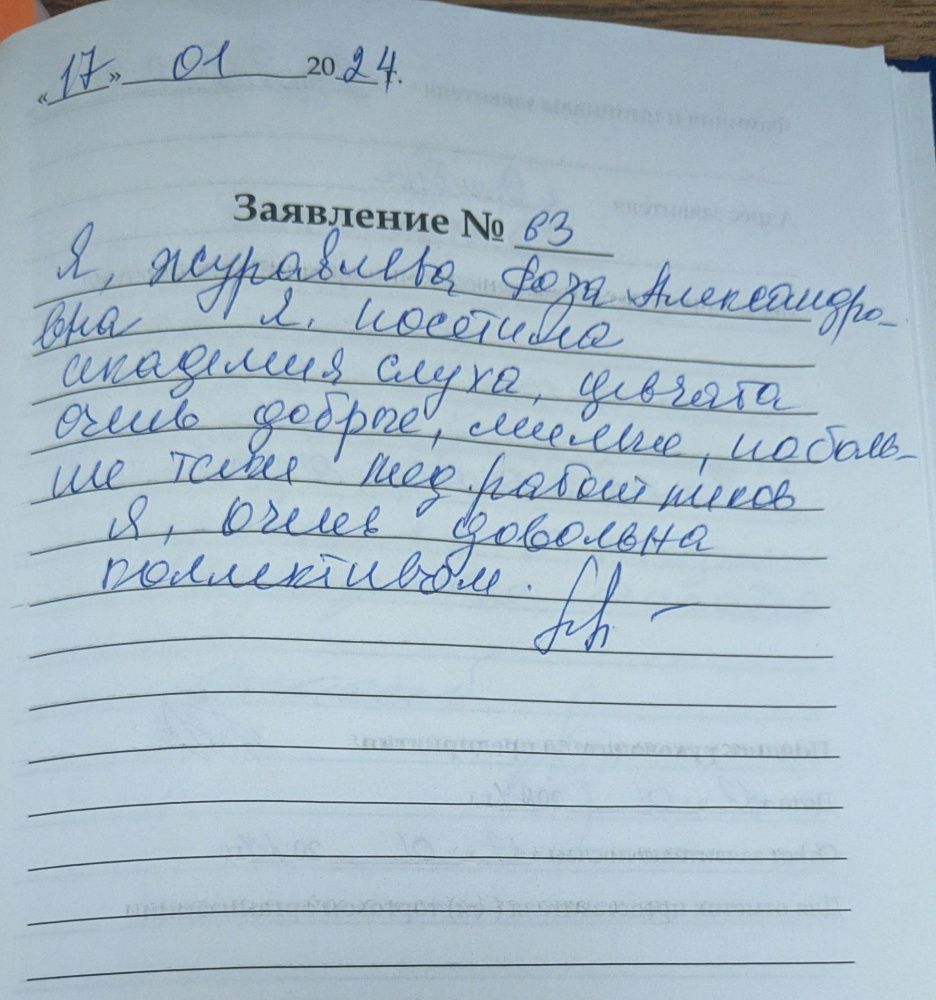 «17» 01 2024.
Заявление № 63
Я, Журавлева Роза Александро-
вна Я, посетила
академия слуха, девчата
очень добрые, милые, поболь-
ше таки мед.работников
Я, очень довольна
коллективом.